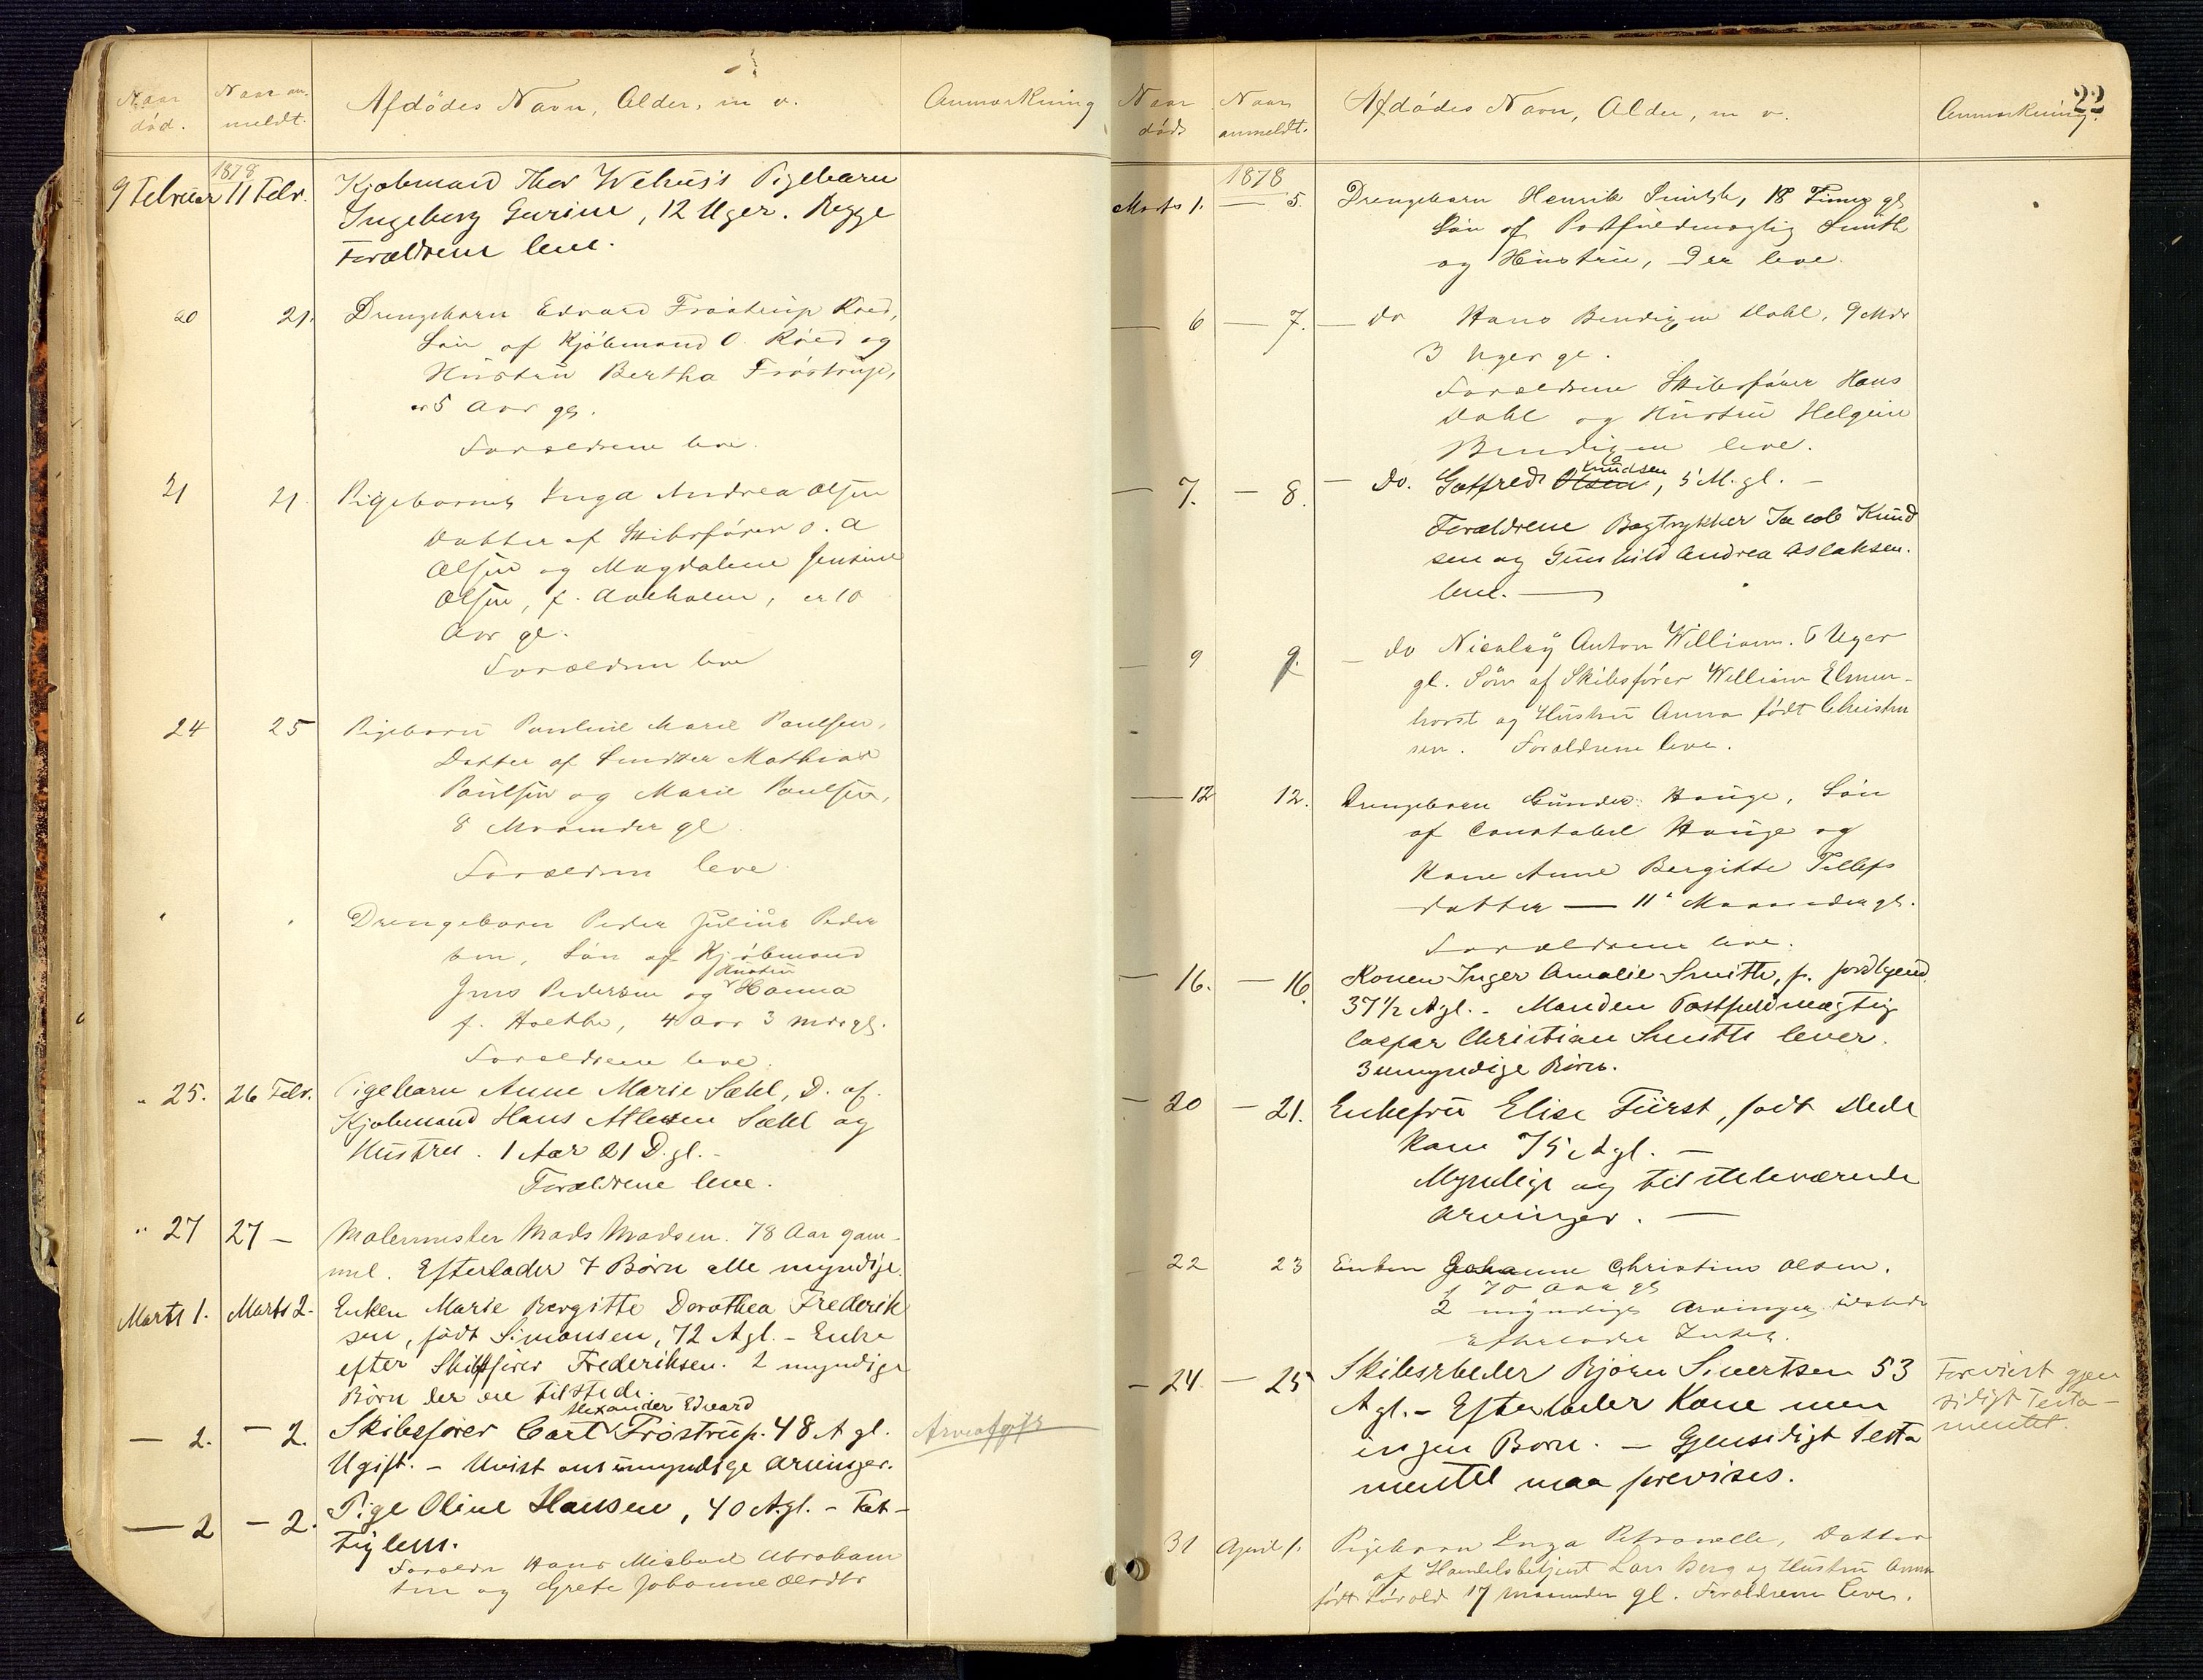 Naar død.
Naar an-
meldt.
Afdödes Navn, Alder, m v.
Anmærkning
1878
9 Februar 11 Febr.
Kjøbmand Thor Wehus's Pigebarn
Ingeborg Gurine, 12 Uger. Begge
Forældrene leve.
20 21.
Drengebarn Edvard Fröstrup Röed,
Sön af Kjöbmand O. Röed og
Hüstrü Bertha Fröstrüp,
5 Aar gl.
Forældrene leve.
21 21.
Pigebarnet Inga Andrea Olsen
Datter af Skibsförer O. A
Olsen og Magdalene Jensine
Olsen, f. , er 10
Aar gl.
Forældrene leve
24 25
Pigebarn Pauline Marie Paulsen,
Datter af Mathias
Paulsen og Marie Paulsen,
8 Maaneder gl
Forældrene leve
Drengebarn Peder Julius Peder
sen, Sön af Kjöbmand
Hustru
Jens Pedersen og Hanna
f. Holthe, 4 Aar 3 Mdr gl.
Forældrene leve.
" 25. 26 Febr.
Pigebarn Anne Marie Sæhl, D. af
Kjøbmand Hans Sæhl og
Hustru. 1 Aar 21 D. gl. -
Forældrene leve.
" 27 27 -
Malermester Mads Madsen. 78 Aar gam-
mel. Efterlader 7 Børn alle myndige.
Marts 1. Marts 2.
Enken Marie Bergitte Dorothea Frederik
sen, født Simonsen, 72 A gl. - Enke
efter Skibsfører Frederiksen. 2 myndige
Børn der ere tilstede.
Alexander Edvard
- 2. - 2.
Skibsfører Carl Frøstrup. 48 A gl.
Arveafgift
Ugift. - Uvist om umyndige Arvinger.
- 2 - 2.
Pige Oline Hansen, 40 A. gl. - Fat-
tiglem.
Forældre Hans Michael Abraham
sen og Grete Johanne Olsdtr
22
Naar
död
Naar
anmeldt.
Afdödes Navn, Alder, m v.
Anmærkning.
1878
Marts 1. — 5.
Drengebarn Henrik Smith, 18 Timer gl
Sön af Postfuldmægtig Smith
og Hüstrü, der leve.
— 6 — 7.
— do Hans Bendixen Dahl, 9 Mdr
3 Uger gl.
Forældrene Skibsförer Hans
Dahl og Hüstrü Helgine
Bendixen leve.
Knudsen
— 7. — 8.
— Do. Gotfred Olsen, 5 M. gl. -
Forældrene Bogtrykker Jacob Knud
sen og Gunhild Andrea Aslaksen.
leve. —
— 9 9.
— do Nicolay Anton William. 6 Uger
gl. Sön af Skibsfører William Elmen-
horst og Hustru Anna født Christen
sen. Forældrene leve.
— 12 12.
Drengebarn Gunder Hauge, Sön
af Constabel Hauge og
Kone Anne Bergitte Tellefs
datter — 11 Maaneder gl.
Forældrene leve.
— 16. — 16.
Konen Inger Amalie Smith, f.
37 1/2 A gl. - Manden Postfuldmægtig
Casper Christian Smith lever.
3 umyndige Børn.
— 20 — 21.
Enkefru Elise Fürst, født Dede
kam 75 A gl. —
Myndige og tilstedeværende
Arvinger. —
22 23
Enken Johanne Christine Olsen.
70 Aar gl
2 myndige Arvinger tilstede
Efterlader Intet.
— 24. — 25
Skibsrheder Bjørn Sivertsen 53
A gl. - Efterlader Kone men
ingen Børn. — Gjensidigt Testa
mente maa forevises.
Forevist gjen
sidigt Testa-
mentet.
31 April 1.
Pigebarn Inga Petronelle, Datter
af Handelsbetjent Lars Berg og Hustru Anna
født 17 Maaneder gl. Forældrene lever.